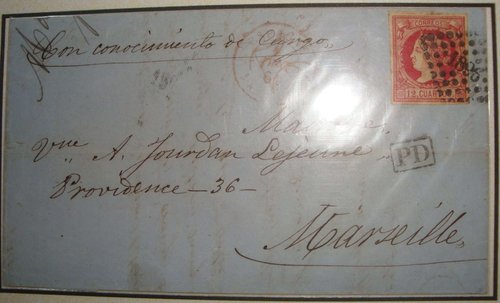 CORREOS
12 CUARTOS
Con conocimiento de Cargo,
PD
A. Jourdan Lejeune
Providence — 36 —
Marseille